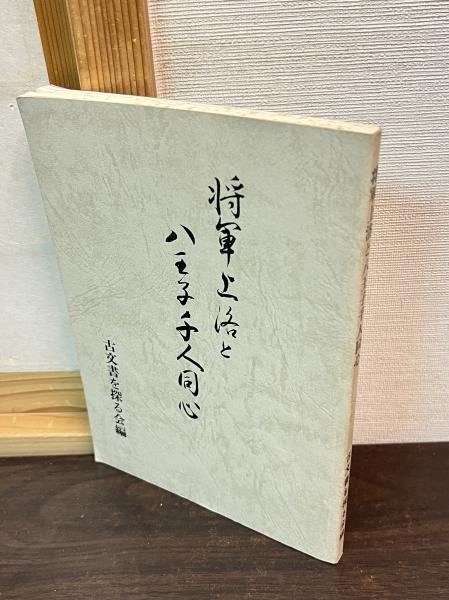 将軍上洛と
八王子千人同心
古文書を探る会編